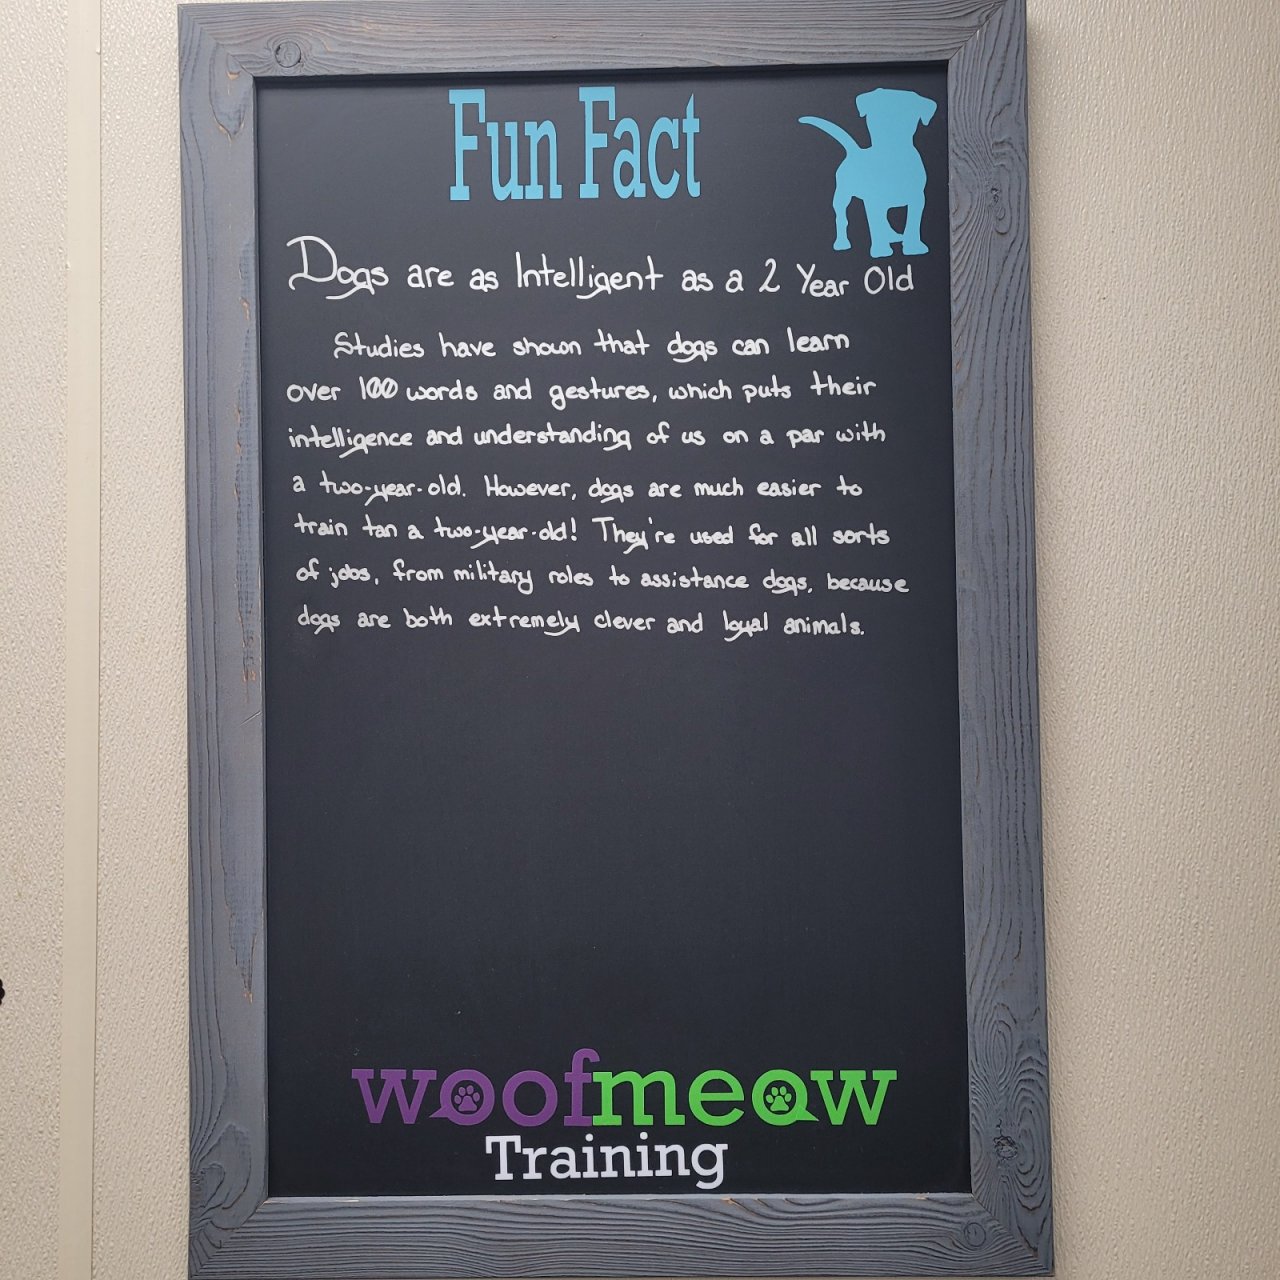 Fun Fact
Dogs are as Intelligent as a 2 Year Old
Studies have shown that dogs can learn
over 100 words and gestures, which puts their
intelligence and understanding of us on a par with
a two-year-old. However, dogs are much easier to
train tan a two-year-old! They're used for all sorts
of jobs, from military roles to assistance dogs, because
dogs are both extremely clever and loyal animals.
woofmeow
Training